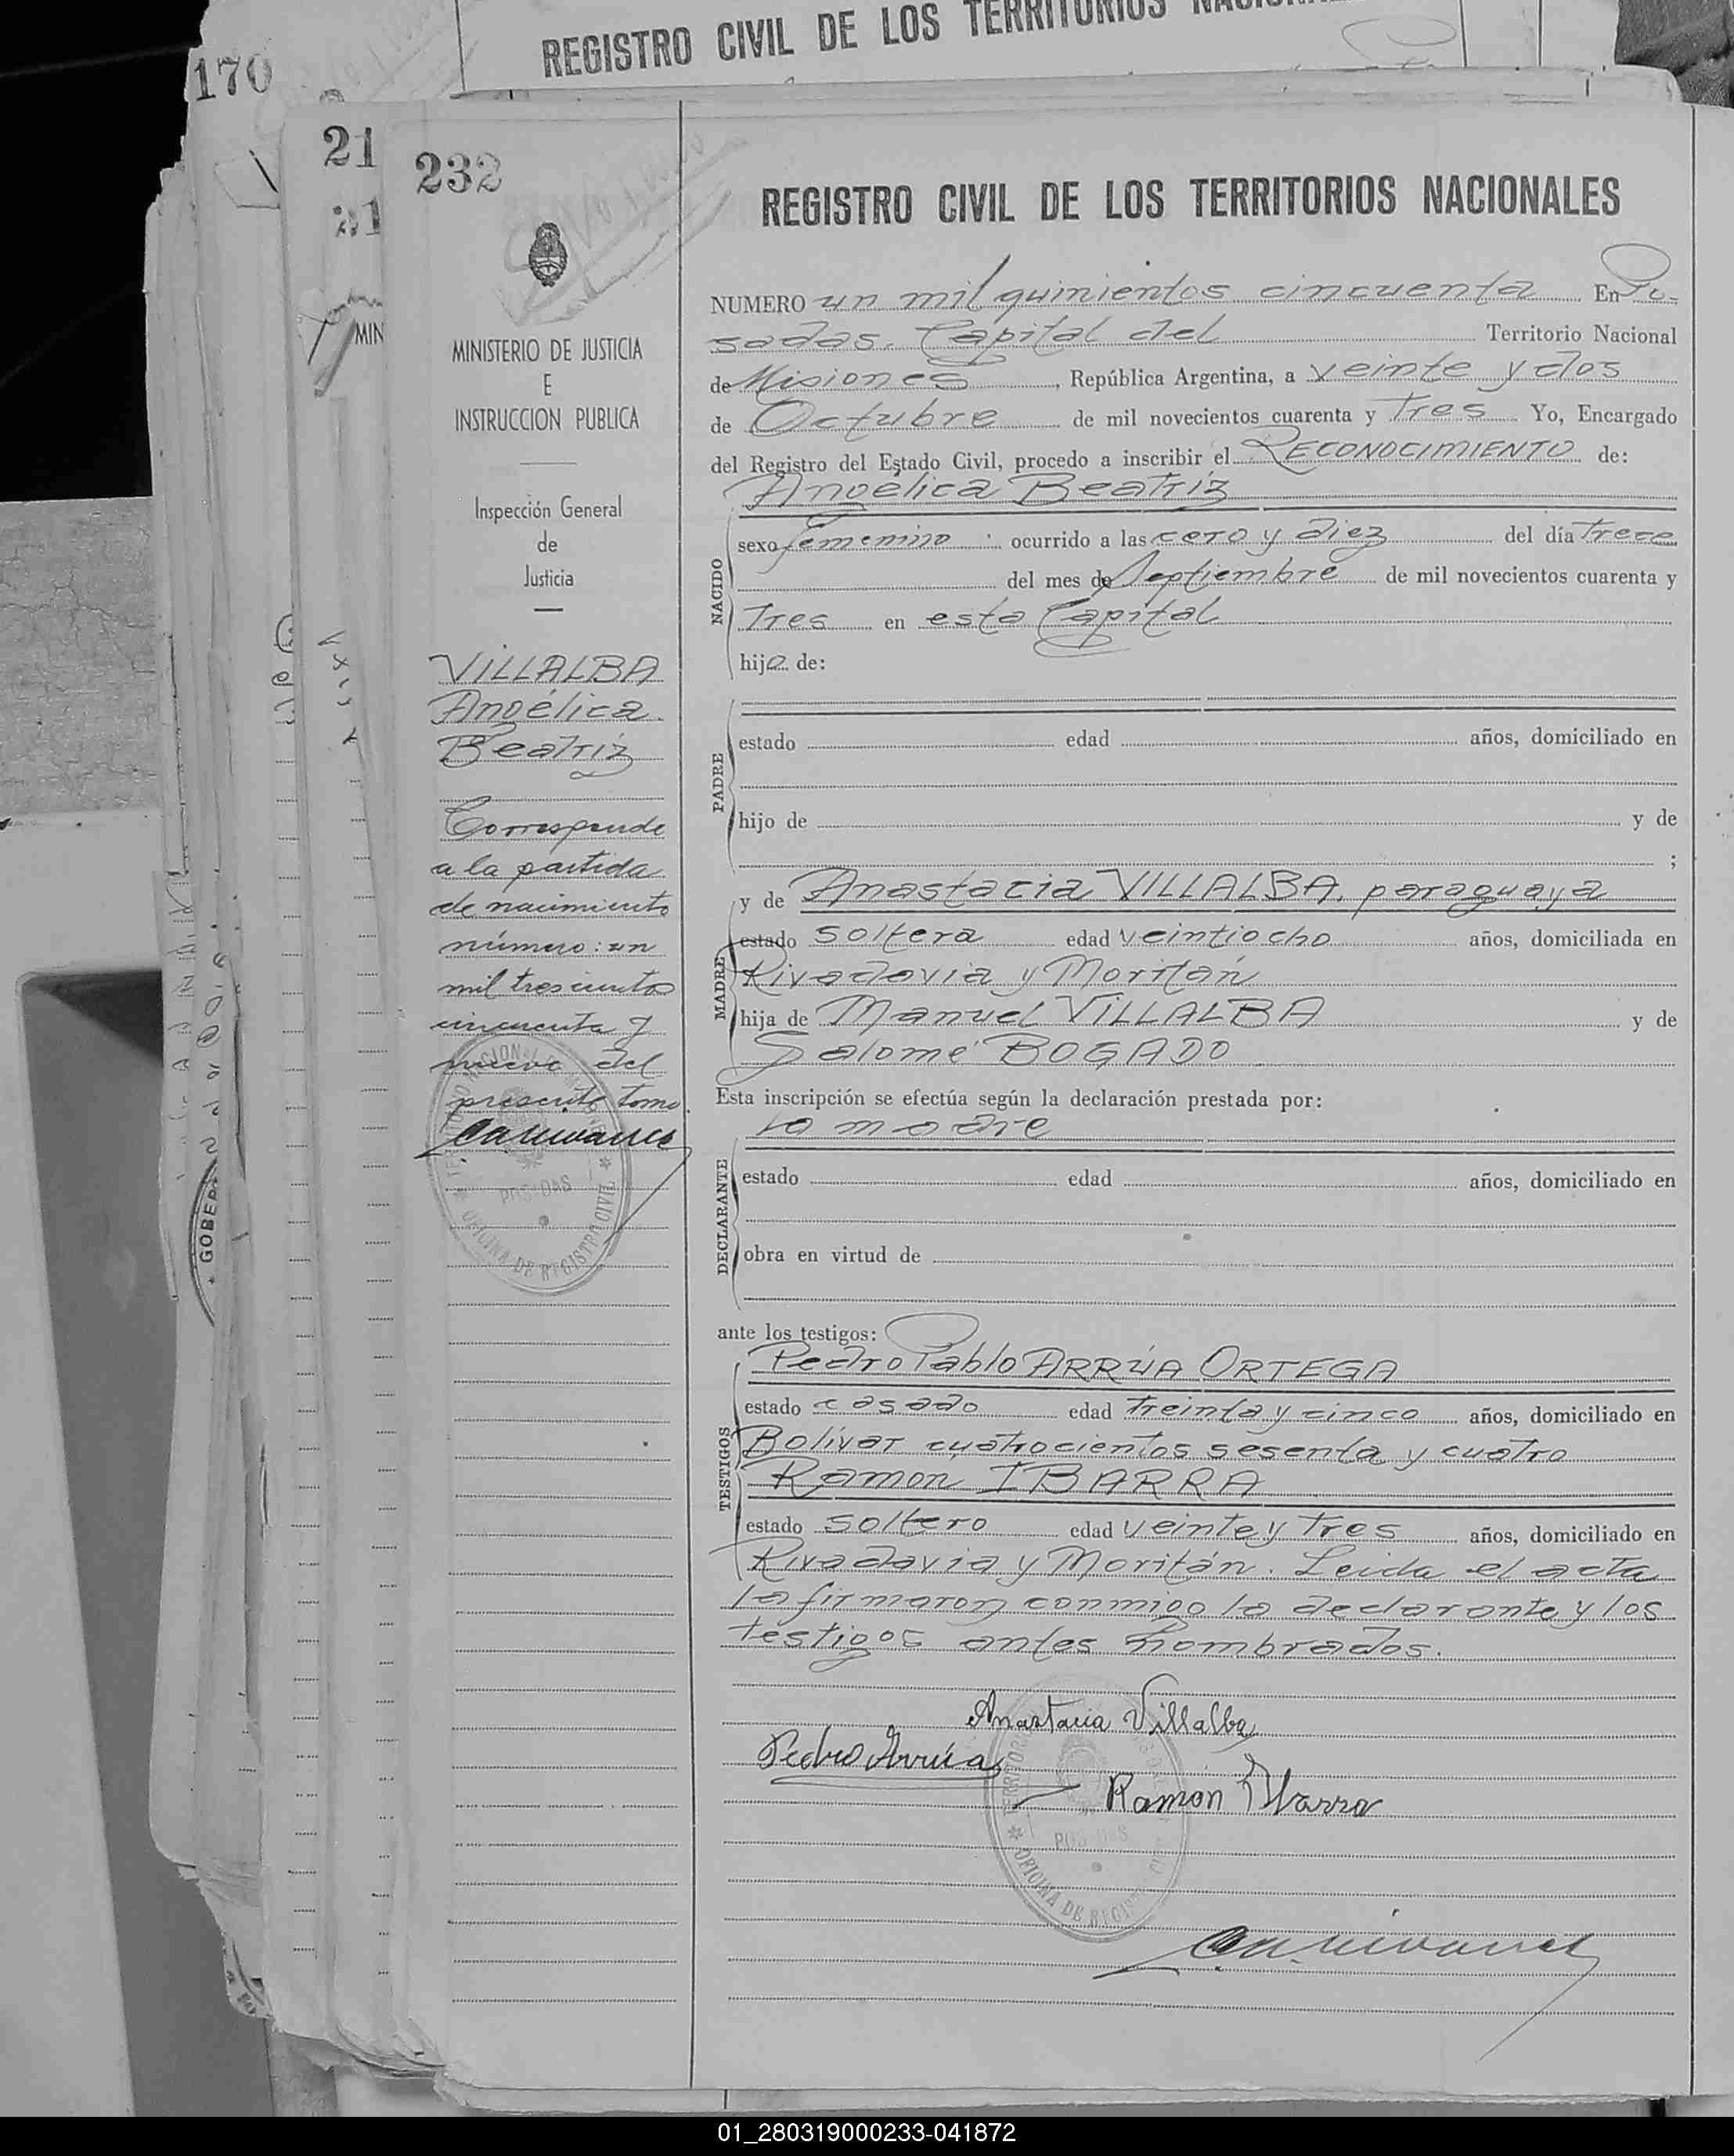 REGISTRO CIVIL DE LOS TERRITORIOS
170
21
232
MIN
REGISTRO CIVIL DE LOS TERRITORIOS NACIONALES
MINISTERIO DE JUSTICIA
E
INSTRUCCION PUBLICA
Inspección General
de
Justicia
VILLALBA
Angélica
Beatriz
Corresponde
a la partida
de nacimiento
número: un
mil trescientos
cincuenta y
nueve del
presente tomo.
POSADAS
OFICINA DE REGISTRO CIVIL
GOBER
NUMERO un mil quinientos cincuenta En Po-
sadas. Capital del Territorio Nacional
de Misiones, República Argentina, a veinte y dos
de Octubre de mil novecientos cuarenta y Tres Yo, Encargado
del Registro del Estado Civil, procedo a inscribir el RECONOCIMIENTO de:
Angélica Beatriz
NACIDO
sexo femenino ocurrido a las cero y diez del día Trece
del mes de Septiembre de mil novecientos cuarenta y
Tres en esta Capital
hija de:
PADRE
estado edad años, domiciliado en
hijo de y de
;
y de Anastacia VILLALBA, paraguaya
MADRE
estado soltera edad veintiocho años, domiciliada en
Rivadavia y Moritán
hija de Manuel VILLALBA y de
Salomé BOGADO
Esta inscripción se efectúa según la declaración prestada por:
la madre
DECLARANTE
estado edad años, domiciliado en
obra en virtud de
ante los testigos:
Pedro Pablo ARRÚA ORTEGA
TESTIGOS
estado casado edad treinta y cinco años, domiciliado en
Bolívar cuatrocientos sesenta y cuatro
Ramon IBARRA
estado soltero edad veinte y Tres años, domiciliado en
Rivadavia y Moritán. Leida el acta
la firmaron conmigo la declarante y los
testigos antes nombrados.
Anastacia Villalba
Pedro Arrúa
Ramon Ibarra
POSADAS
OFICINA DE REGISTRO
01_280319000233-041872